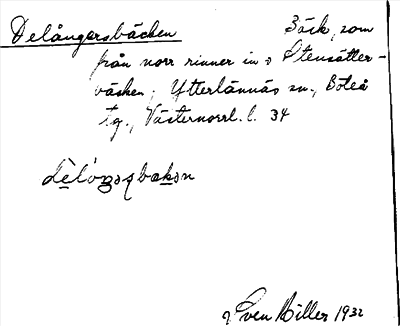 Delångersbäcken Bäck, som
från norr rinner in i Stensätter-
bäcken, Ytterlännäs sn., Boteå
tg., Västernorrl. l. 34
Sven Hiller 1932